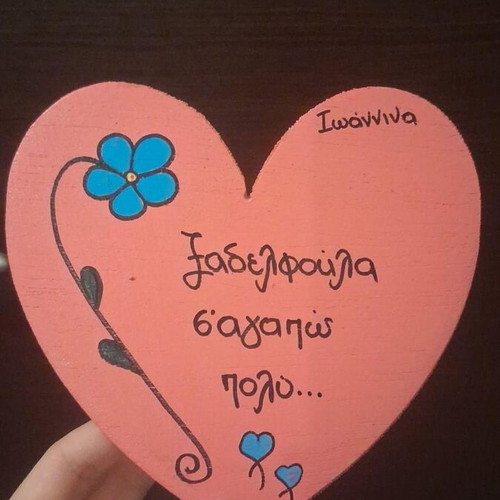 Ιωάννινα
ξαδελφούλα
σ'αγαπώ
πολύ...